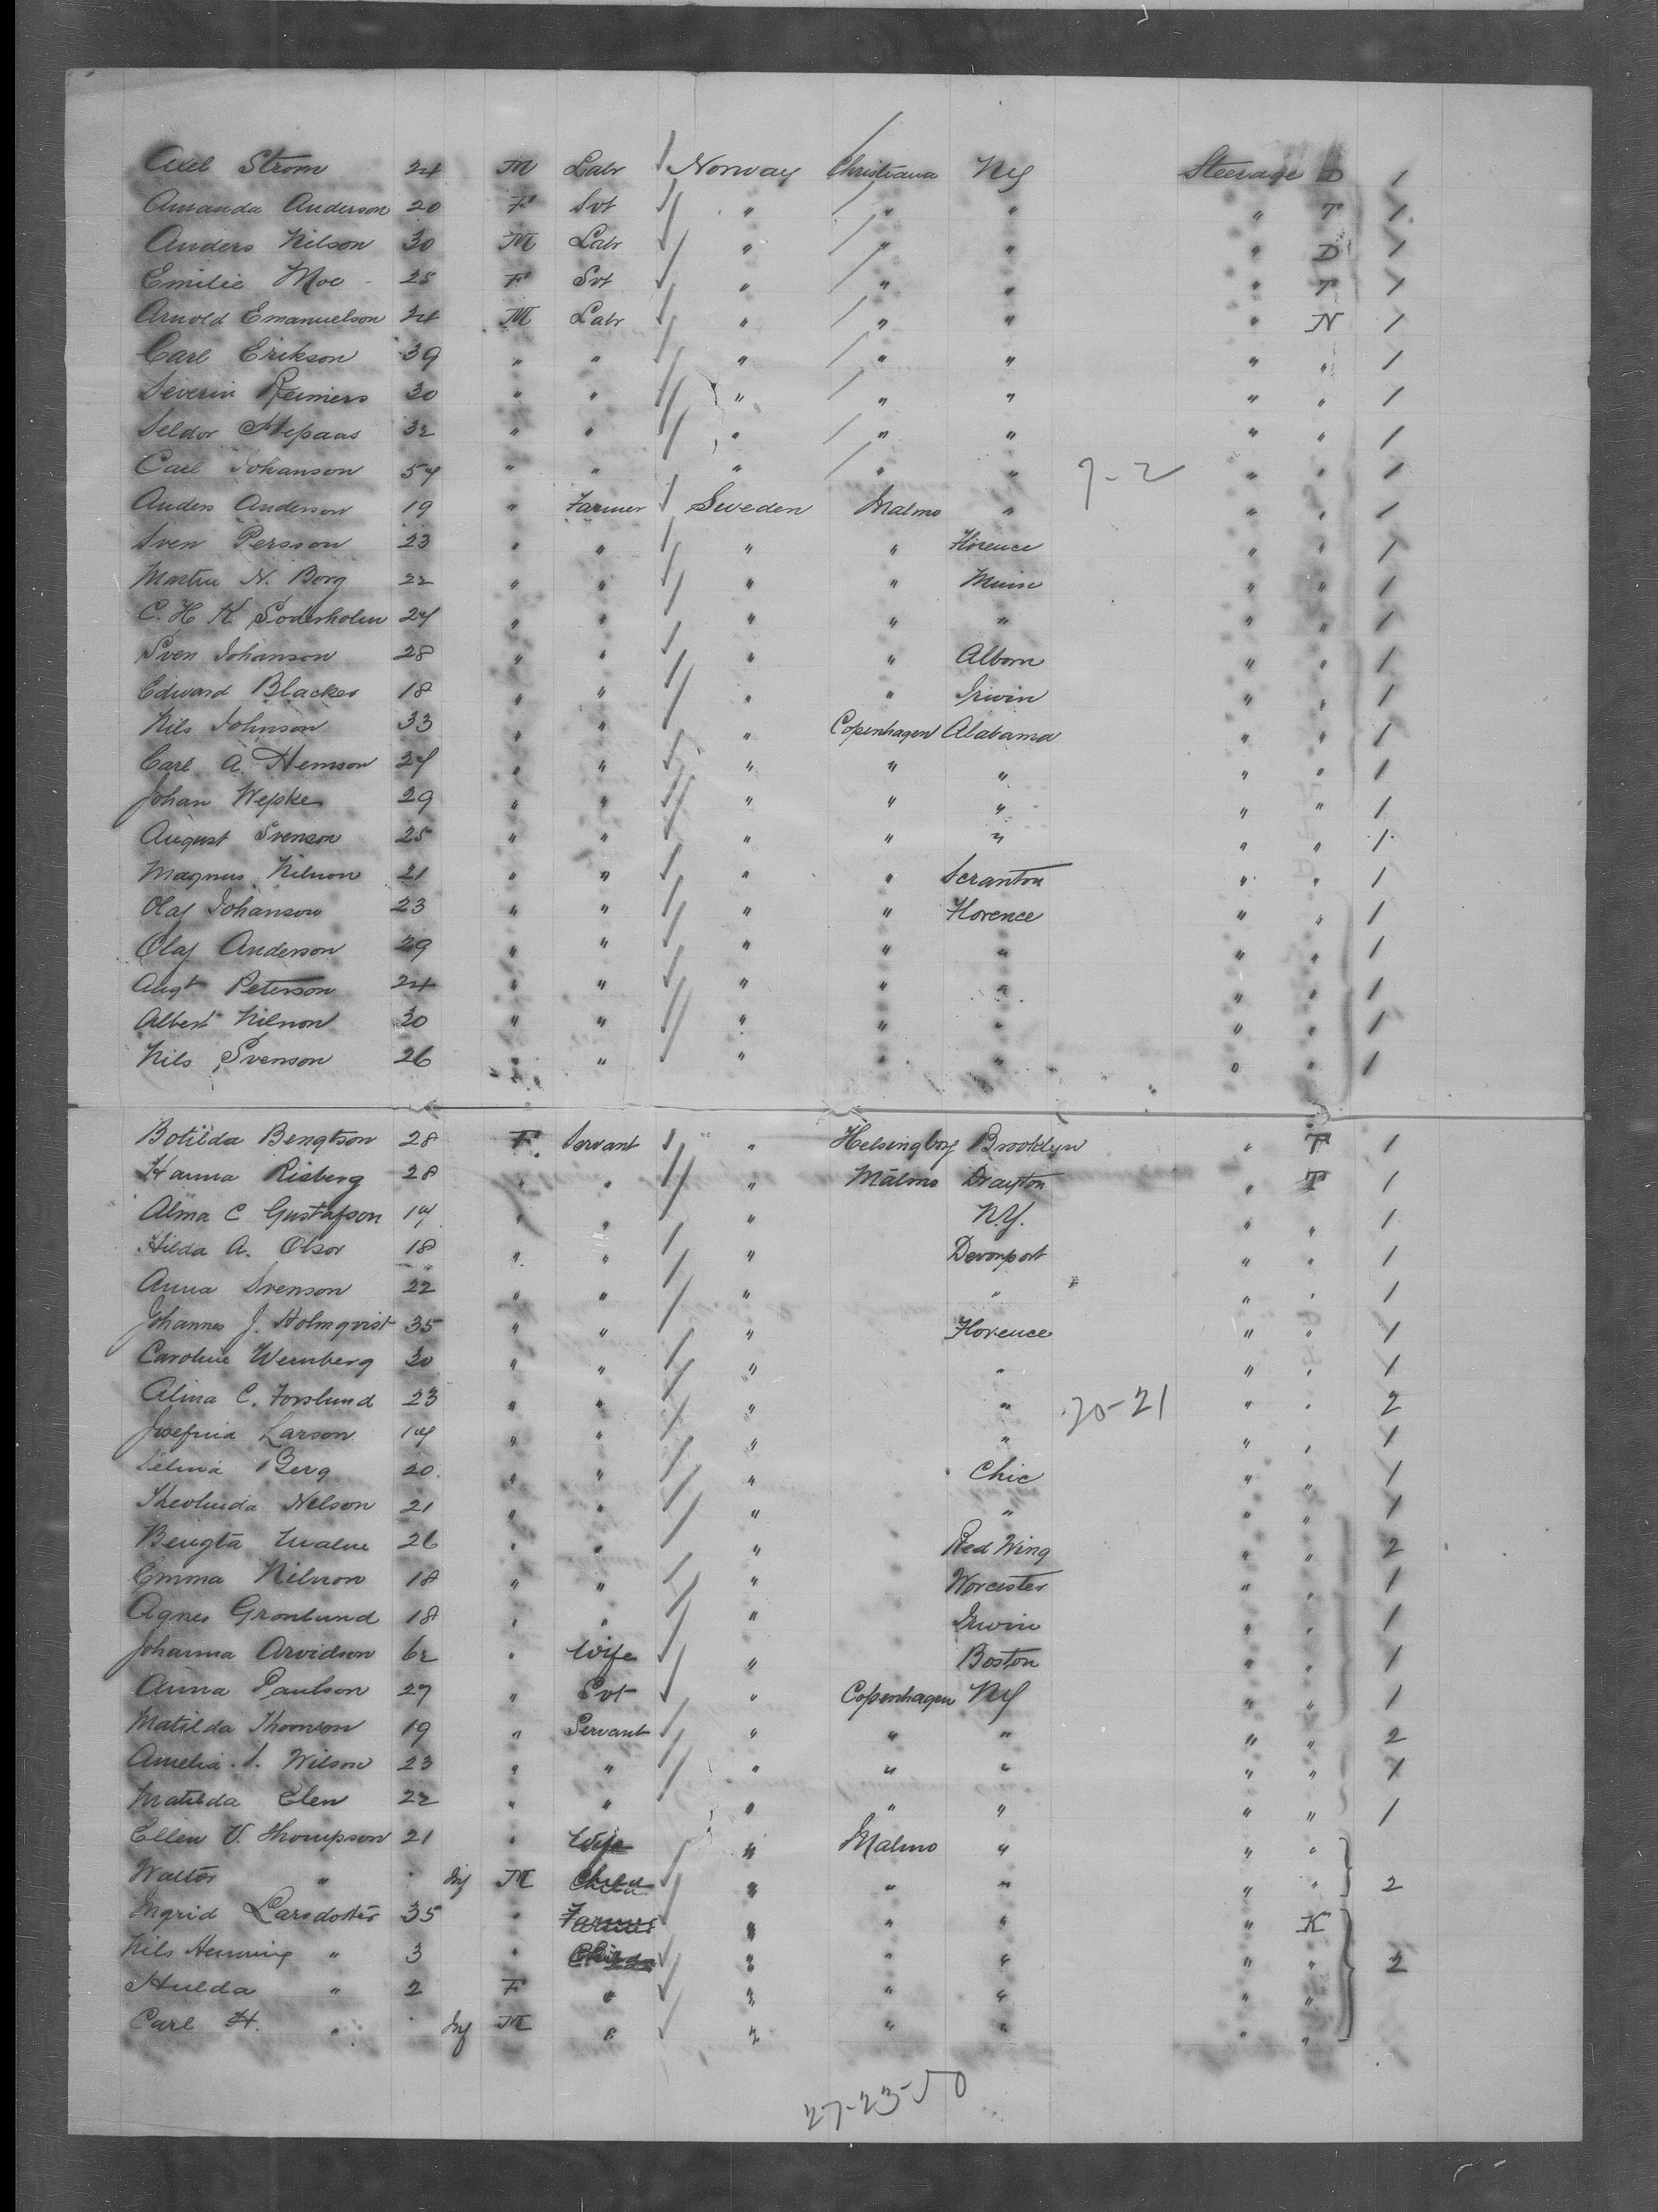 Axel Strom 24 M Labr Norway Christiana NY Steerage D 1
Amanda Anderson 20 F Svt " " " " T 1
Anders Nilson 30 M Labr " " " " D 1
Emilie Moe - 25 F Svt " " " " T 1
Arnold Emanuelson 24 M Labr " " " " N 1
Carl Erikson 39 " " " " " " " 1
Severin Reimers 30 " " " " " " " 1
Seldor 32 " " " " " " " 1
Carl Johanson 54 " " " " " 7-2 " " 1
Anders Anderson 19 " Farmer Sweden Malmo " " " 1
Sven Persson 23 " " " " Florence " " 1
Martin N. Borg 22 " " " " " " 1
C. H K. Soderholm 24 " " " " " " " 1
Sven Johanson 28 " " " " Albom " " 1
Edward Blacker 18 " " " " Irwin " " 1
Nils Johnson 33 " " " Copenhagen Alabama " " 1
Carl A. Hemson 24 " " " " " " " 1
Johan Wepke 29 " " " " " " " 1
August Svenson 25 " " " " " " " 1
Magnus Nilson 21 " " " " Scranton " " 1
Olaf Johanson 23 " " " " Florence " " 1
Olaf Anderson 29 " " " " " " " 1
Augt Peterson 24 " " " " " " " 1
Albert Nilson 30 " " " " " " " 1
Nils Svenson 26 " " " " " " " 1
Botilda Bengtson 28 F Servant " Helsingborg Brooklyn " T 1
Hanna Risberg 28 " " " Malmo Drayton " T 1
Alma C Gustafson 14 " " " N.Y. " " 1
Hilda A. Olsor 18 " " " Devonport " " 1
Anna Svenson 22 " " " " " " 1
Johannes J. Holmqvist 35 " " " Florence " " 1
Caroline Wernberg 30 " " " " " " 1
Alina C. Forslund 23 " " " " 20-21 " " 2
Josefina Larson 14 " " " " " " 1
Selma Berg 20 " " " Chic " " 1
Nelson 21 " " " " " " 1
Bengta 26 " " " Red Wing " " 2
Emma Nilson 18 " " " Worcester " " 1
Agnes Gronlund 18 " " " Irwin " " 1
Johanna Arvidson 62 " Wife " Boston " " 1
Anna Paulson 27 " Svt " Copenhagen NY " " 1
Matilda Thomson 19 " Servant " " " " " 2
Amelia S. Wilson 23 " " " " " " " 1
Matilda Elen 22 " " " " " " " 1
Ellen V. Thompson 21 " Wife " Malmo " " "
Walter " Inf M Child " " " " " 2
Ingrid Larsdotter 35 " Farmer " " " " K
Nils Henning " 3 " Child " " " " " 2
Hulda " 2 F " " " " " "
Carl H. " Inf M " " " " " "
27-23-50